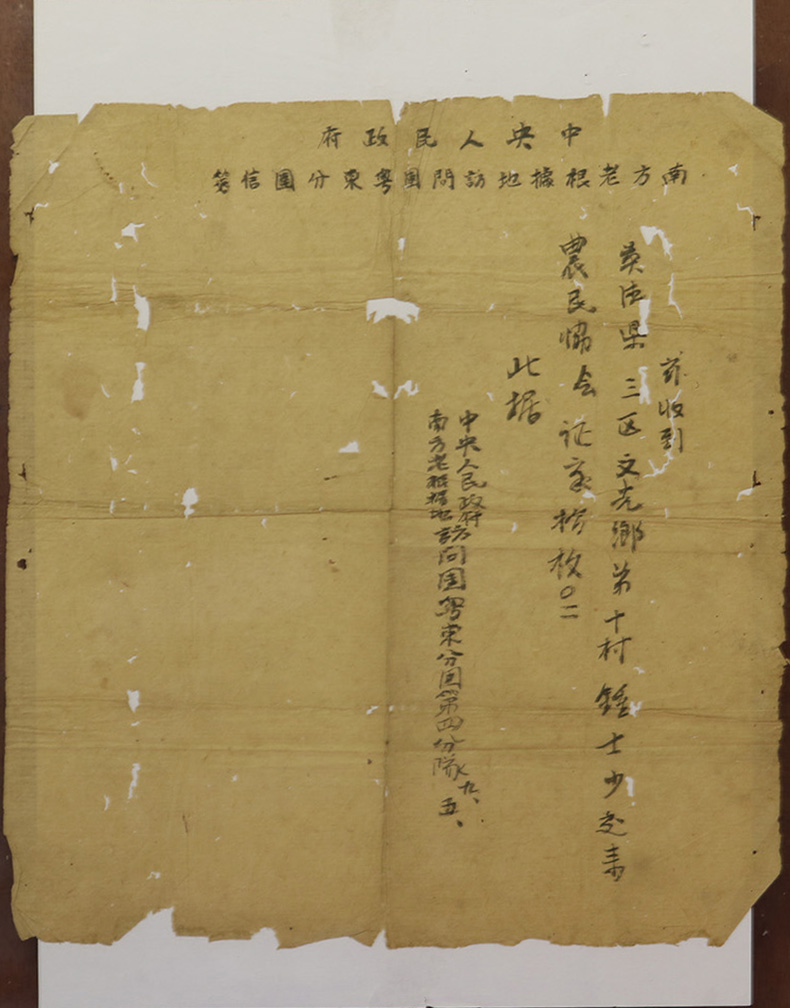 中央人民政府
南方老根據地訪問團粵東分團信箋
茲收到
英德県三区文光鄉第十村鍾士少交来
農民協会証章拾枚〇二
此据
中央人民政府
南方老根據地訪问团粵東分团第四分隊
九、五、